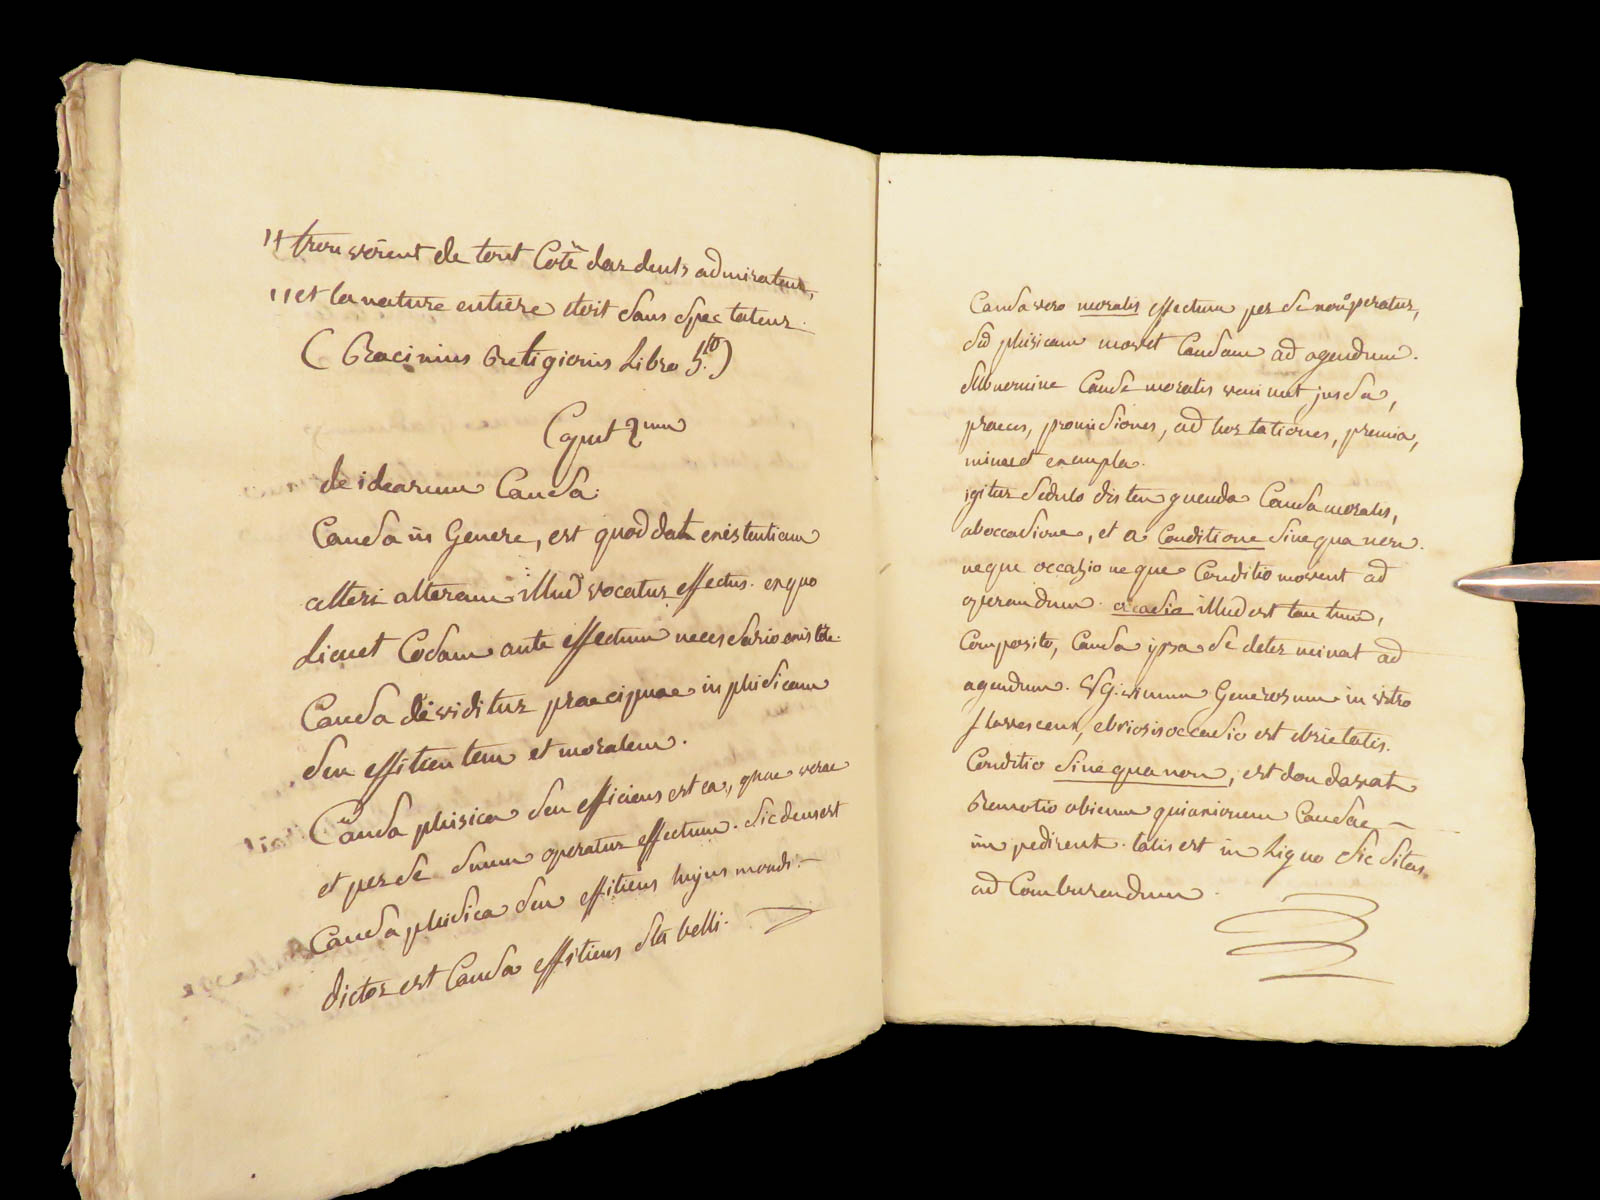 "trouvoient de tout Côté dardents admirateurs,
"et la nature entiere étoit sans spectateur.
(Racinius Religionis Libro 5.to)
Caput 2.num
de idearum Causa.
Causa in Genere, est quod dat existentiam
alteri alteram illud vocatur effectus. ex quo
Liquet Causam ante effectum necessario existere.
Causa dividitur praecipuae in phisicam
seu effitientem et moralem.
Causa phisica seu efficiens est ea, quae verae
et per se suum operatur effectum. sic deus est
Causa phisica seu effitiens hujus mundi.
Causa vero moralis effectum per se non operatur,
sed phisicam movet Causam ad agendum.
sub nomine Causae moralis veniunt jussa,
praeces, promissiones, adhortationes, premia,
minae et exempla.
igitur sedulo distenguenda Causa moralis,
ab occasione, et a Conditione sine qua non.
neque occasio neque Conditio movent ad
operandum. occasio illud est tantum,
Composito, Causa ipsa se determinat ad
agendum. V.G. vinum Generosum in vitro
flavescens, ebriosis occasio est ebrietatis.
Conditio sine qua non, est
Remotio Causae
impedirent. talis est in Ligno siccitas
ad Comburendum.